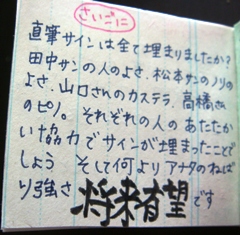 さいごに
直筆サインは全て埋まりましたか?
田中サンの人のよさ、松本サンのノリの
よさ、山口さんのカステラ、高橋さん
のピノ。それぞれの人のあたたか
い協力でサインが埋まったことで
しょう そして何よりアナタのねば
り強さ 将来有望です